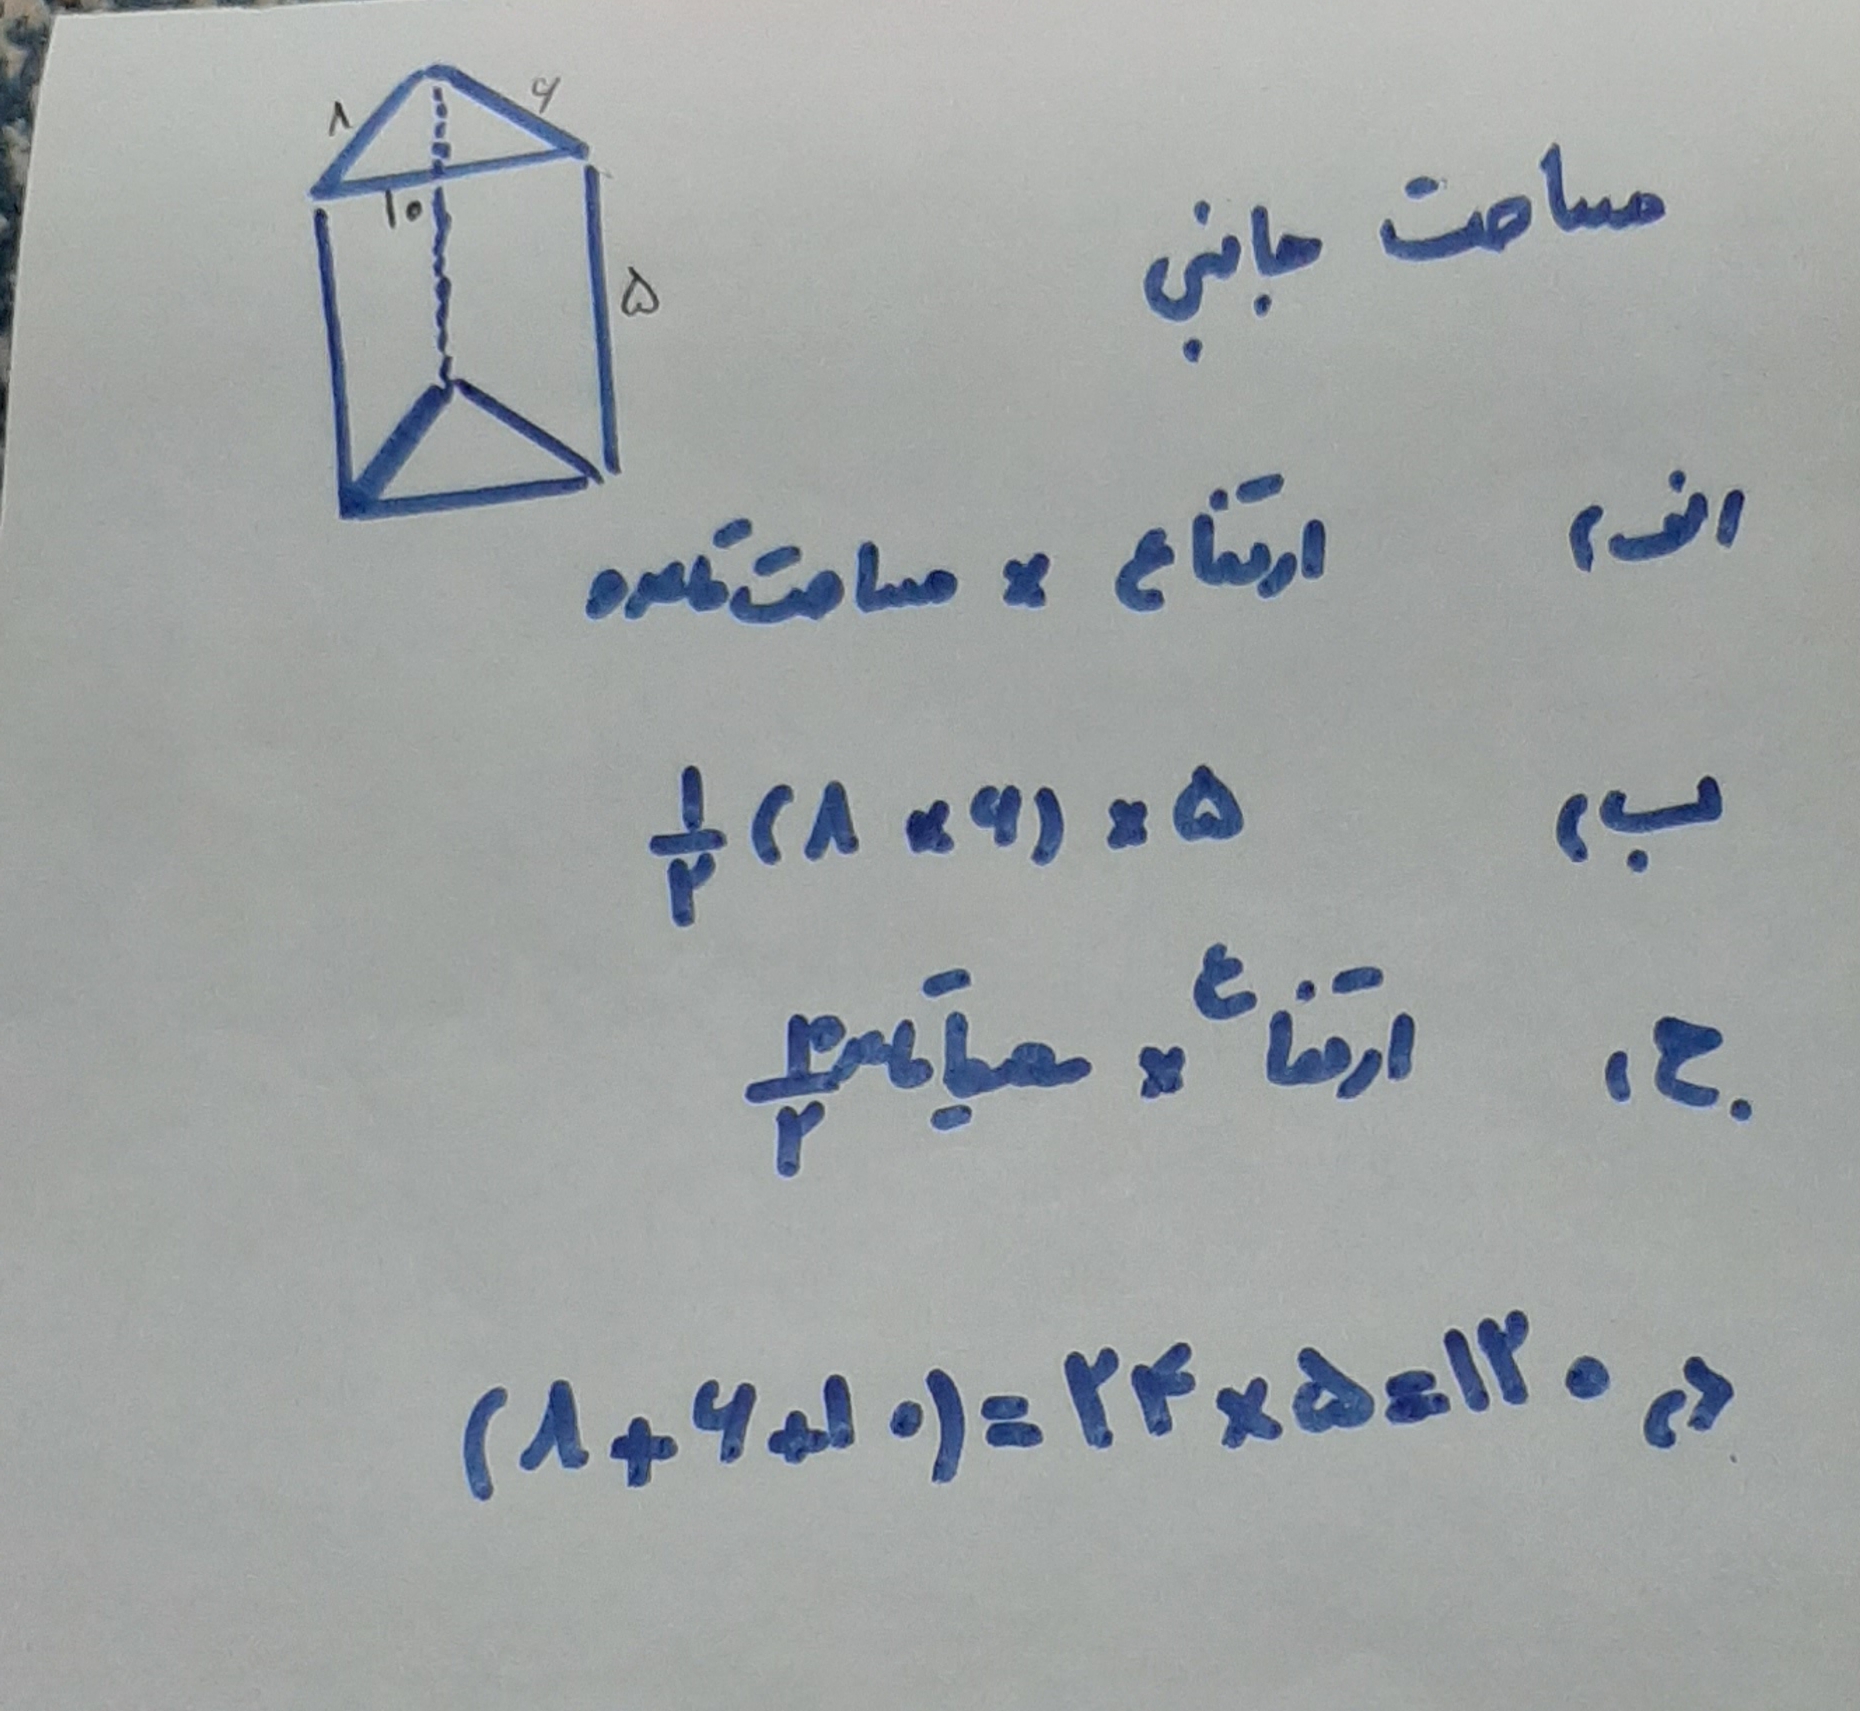 ۸ ۶
۱۰
۵
مساحت جانبی
الف) ارتفاع × مساحت قاعده
ب) ۱/۲ (۸ × ۶) × ۵
ج) ارتفاع ×
د) (۸+۶+۱۰)=۲۴×۵=۱۲۰